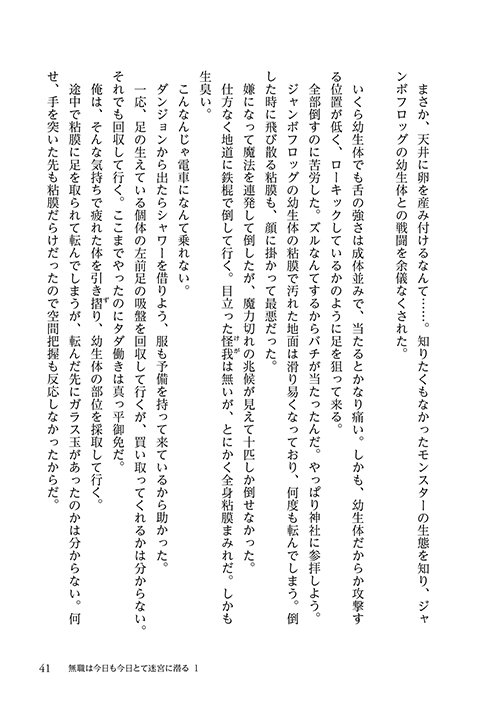 まさか、天井に卵を産み付けるなんて……。知りたくもなかったモンスターの生態を知り、ジャ
ンボフロッグの幼生体との戦闘を余儀なくされた。
いくら幼生体でも舌の強さは成体並みで、当たるとかなり痛い。しかも、幼生体だからか攻撃す
る位置が低く、ローキックしているかのように足を狙って来る。
全部倒すのに苦労した。ズルなんてするからバチが当たったんだ。やっぱり神社に参拝しよう。
ジャンボフロッグの幼生体の粘膜で汚れた地面は滑り易くなっており、何度も転んでしまう。倒
した時に飛び散る粘膜も、顔に掛かって最悪だった。
嫌になって魔法を連発して倒したが、魔力切れの兆候が見えて十匹しか倒せなかった。
仕方なく地道に鉄棍で倒して行く。目立った怪我は無いが、とにかく全身粘膜まみれだ。しかも
生臭い。
こんなんじゃ電車になんて乗れない。
ダンジョンから出たらシャワーを借りよう、服も予備を持って来ているから助かった。
一応、足の生えている個体の左前足の吸盤を回収して行くが、買い取ってくれるかは分からない。
それでも回収して行く。ここまでやったのにタダ働きは真っ平御免だ。
俺は、そんな気持ちで疲れた体を引き摺り、幼生体の部位を採取して行く。
途中で粘膜に足を取られて転んでしまうが、転んだ先にガラス玉があったのかは分からない。何
せ、手を突いた先も粘膜だらけだったので空間把握も反応しなかったからだ。
41 無職は今日も今日とて迷宮に潜る 1